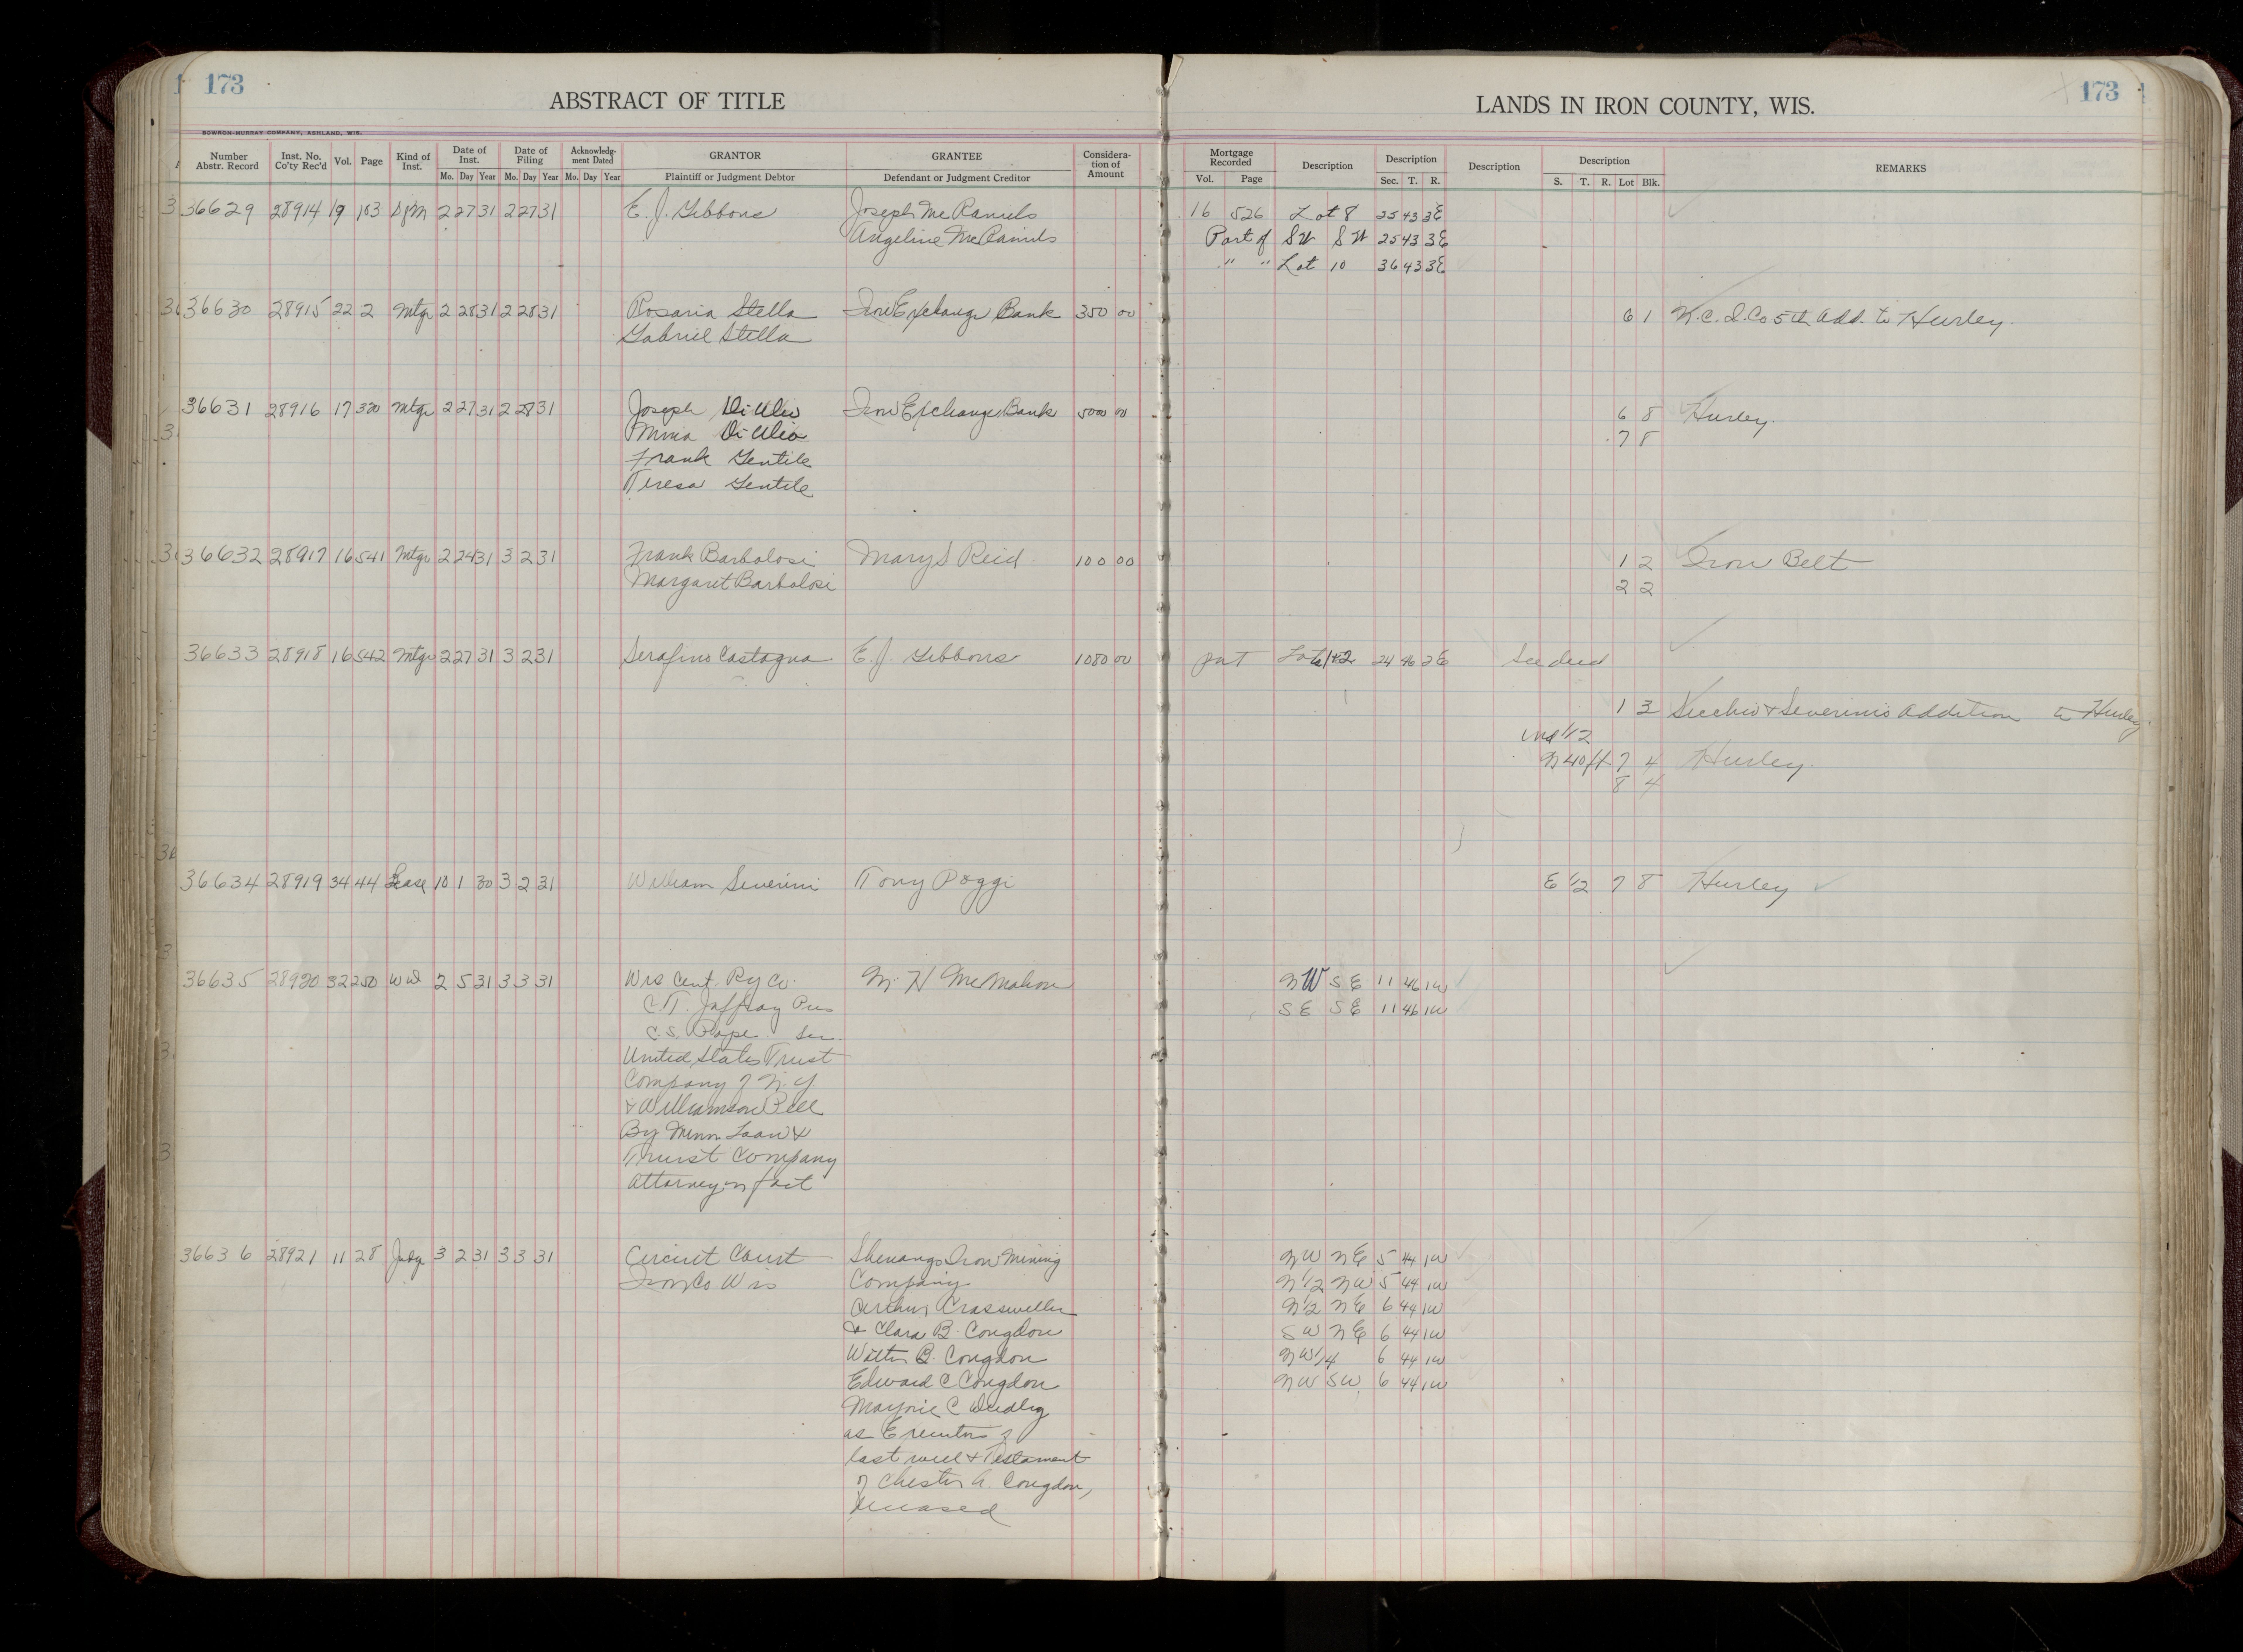 173
ABSTRACT OF TITLE
LANDS IN IRON COUNTY, WIS.
173
BOWRON-MURRAY COMPANY, ASHLAND, WIS.
Number Abstr. Record | Inst. No. Co'ty Rec'd | Vol. | Page | Kind of Inst. | Date of Inst. Mo. Day Year | Date of Filing Mo. Day Year | Acknowledg-ment Dated Mo. Day Year | GRANTOR Plaintiff or Judgment Debtor | GRANTEE Defendant or Judgment Creditor | Considera-tion of Amount | Mortgage Recorded Vol. Page | Description | Description Sec. T. R. | Description | Description S. T. R. Lot Blk. | REMARKS
36629 28914 19 103 2 27 31 2 27 31 E. J. Gibbons Joseph McDaniels 16 526 Lot 8 25 43 3E
Angeline McDaniels Part of SW SW 25 43 3E
" " Lot 10 36 43 3E
36630 28915 22 2 Mtge 2 28 31 2 28 31 Rosaria Stella Iron Exchange Bank 350 00 6 1 N.C.I.Co 5th Add. to Hurley.
Gabriel Stella
36631 28916 17 320 Mtge 2 27 31 2 28 31 Joseph Di Ulio Iron Exchange Bank 5000 00 6 8 Hurley.
Di Ulio 7 8
Frank Gentile
Teresa Gentile
36632 28917 16 541 Mtge 2 24 31 3 2 31 Frank Barbolosi Mary S Reid 100 00 1 2 Iron Belt
Margaret Barbolosi 2 2
36633 28918 16 542 Mtge 2 27 31 3 2 31 Serafino Castagna E. J. Gibbons 1080 00 part Lots 1+2 24 46 2E See deed
1 3 Secchio & Severini's Addition to Hurley.
und 1/2
N 40 ft 7 4 Hurley.
8 4
36634 28919 34 44 Lease 10 1 30 3 2 31 William Severini Tony Poggi E 1/2 7 8 Hurley
36635 28920 32 250 WD 2 5 31 3 3 31 Wis. Cent. Ry Co. M. H McMahon NW SE 11 46 1W
C. T. Jaffray Pres SE SE 11 46 1W
C. S. Pope Sec.
United States Trust
Company of N. Y.
& Williamson Pell
By Minn Loan &
Trust Company
Attorney in fact
36636 28921 11 28 Judg 3 2 31 3 3 31 Circuit Court Shenango Iron Mining NW NE 5 44 1W
Iron Co Wis Company N 1/2 NW 5 44 1W
Arthur Crassweller N 1/2 NE 6 44 1W
& Clara B. Congdon SW NE 6 44 1W
Walter B. Congdon NW 1/4 6 44 1W
Edward C Congdon NW SW 6 44 1W
Marjorie C Dudley
as Executors of
last will & Testament
of Chester A. Congdon,
deceased